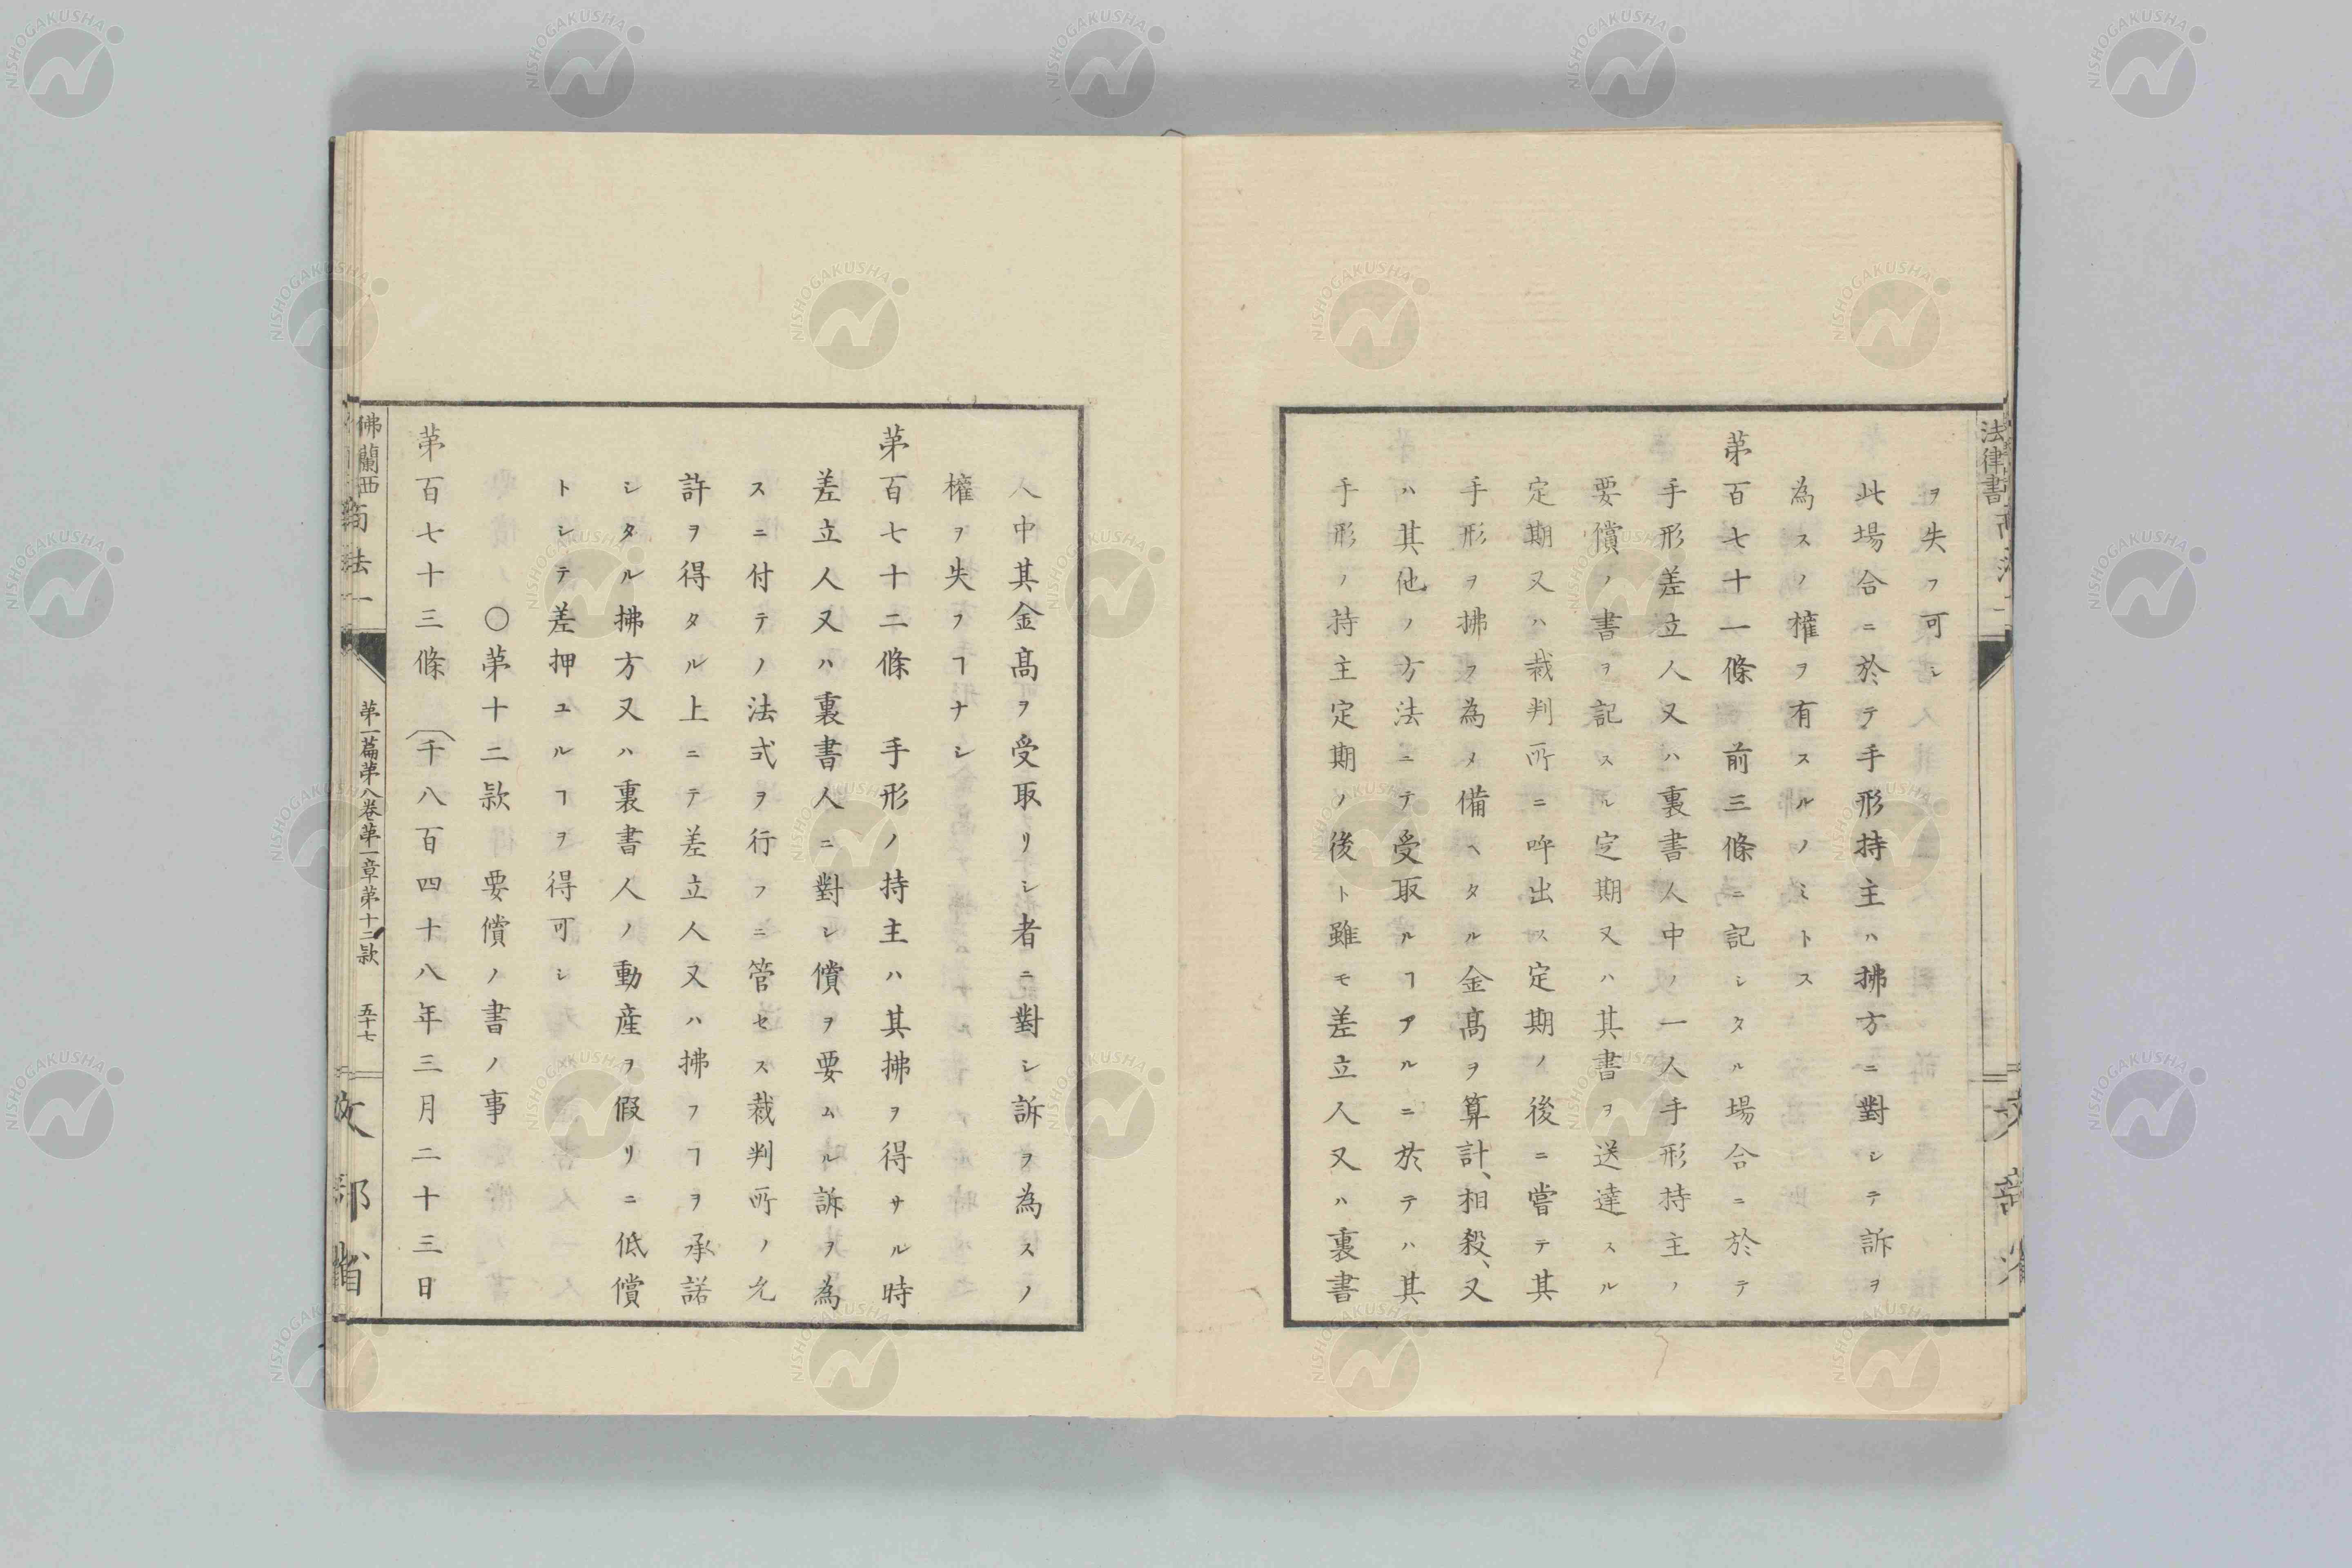 ヲ失フ可シ
此場合ニ於テ手形持主ハ拂方ニ對シテ訴ヲ
為スノ權ヲ有スルノミトス
第百七十一條 前三條ニ記シタル場合ニ於テ
手形差立人又ハ裏書人中ノ一人手形持主ノ
要償ノ書ヲ記スル定期又ハ其書ヲ送達スル
定期又ハ裁判所ニ呼出ス定期ノ後ニ嘗テ其
手形ヲ拂フ為メ備ヘタル金髙ヲ算計、相殺、又
ハ其他ノ方法ニテ受取ルヿアルニ於テハ其
手形ノ持主定期ノ後ト雖モ差立人又ハ裏書
人中其金髙ヲ受取リシ者ニ對シ訴ヲ為スノ
權ヲ失フヿナシ
第百七十二條 手形ノ持主ハ其拂ヲ得サル時
差立人又ハ裏書人ニ對シ償ヲ要ムル訴ヲ為
スニ付テノ法式ヲ行フニ管セス裁判所ノ允
許ヲ得タル上ニテ差立人又ハ拂フヿヲ承諾
シタル拂方又ハ裏書人ノ動産ヲ假リニ低償
トシテ差押ユルヿヲ得可シ
〇第十二款 要償ノ書ノ事
第百七十三條 (千八百四十八年三月二十三日
佛蘭西 商法一 第一篇第八卷第一章第十二款 五十七 文部省
法律書
NISHOGAKUSHA